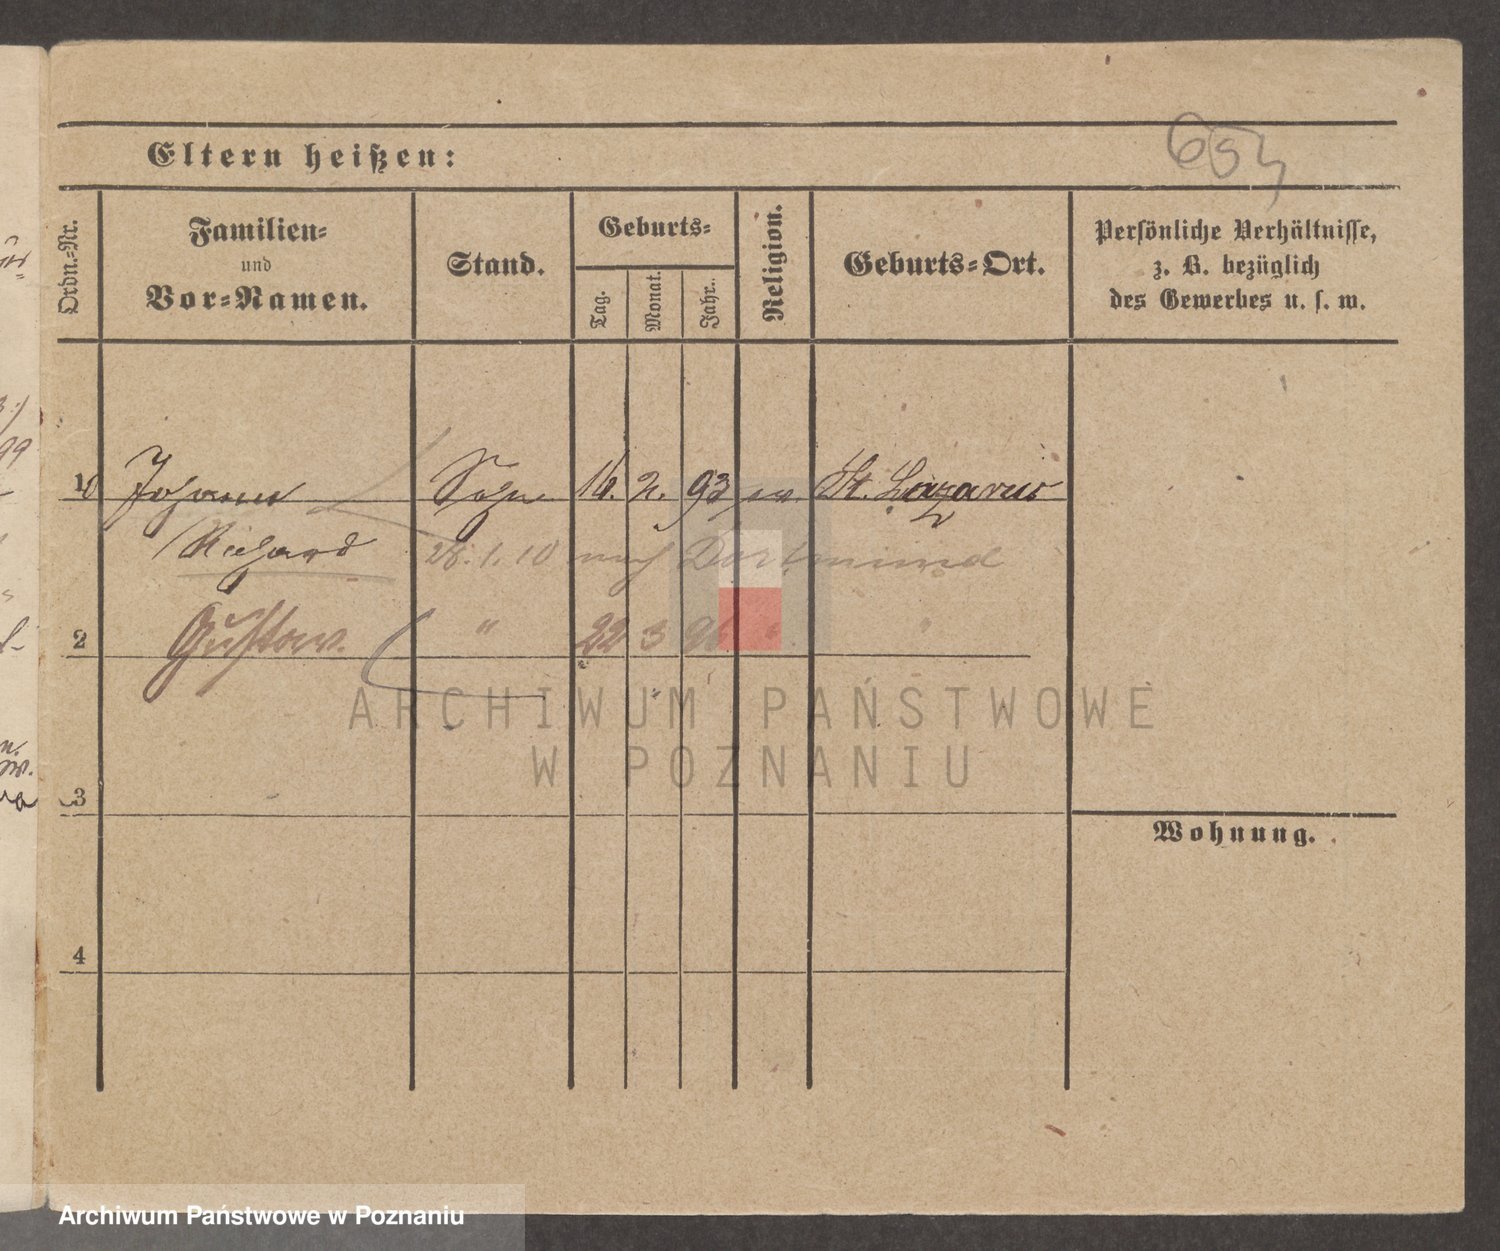 654
Eltern heißen:
Ordn.-Nr.
Familien-
und
Vor-Namen.
Stand.
Geburts-
Tag.
Monat.
Jahr.
Religion.
Geburts-Ort.
Persönliche Verhältnisse,
z. B. bezüglich
des Gewerbes u. s. w.
Johann Sohn 16. 2. 93 ev. St. Lazarus
Richard 28. 1. 10 nach Dortmund
2 Gustav. " 22 3 " "
3
4
Wohnung.
ARCHIWUM PAŃSTWOWE
W POZNANIU
Archiwum Państwowe w Poznaniu